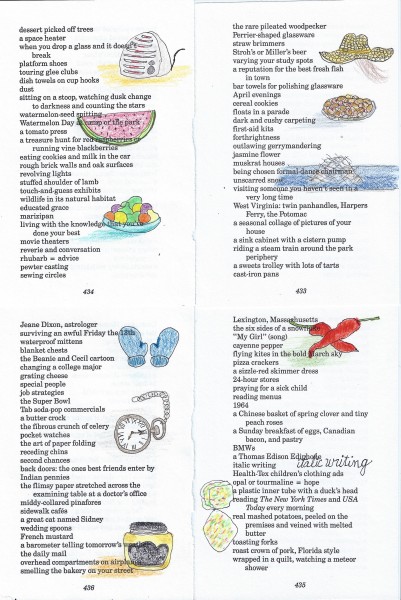 dessert picked off trees
a space heater
when you drop a glass and it doesn't
break
platform shoes
touring glee clubs
dish towels on cup hooks
dust
sitting on a stoop, watching dusk change
to darkness and counting the stars
watermelon-seed spitting
Watermelon Day in camp or the park
a tomato press
a treasure hunt for red raspberries or
running vine blackberries
eating cookies and milk in the car
rough brick walls and oak surfaces
revolving lights
stuffed shoulder of lamb
touch-and-guess exhibits
wildlife in its natural habitat
educated grace
marizipan
living with the knowledge that you've
done your best
movie theaters
reverie and conversation
rhubarb = advice
pewter casting
sewing circles
434
the rare pileated woodpecker
Perrier-shaped glassware
straw brimmers
Stroh's or Miller's beer
varying your study spots
a reputation for the best fresh fish
in town
bar towels for polishing glassware
April evenings
cereal cookies
floats in a parade
dark and cushy carpeting
first-aid kits
forthrightness
outlawing gerrymandering
jasmine flower
muskrat houses
being chosen formal-dance chairman
unscarred snow
visiting someone you haven't seen in a
very long time
West Virginia: twin panhandles, Harpers
Ferry, the Potomac
a seasonal collage of pictures of your
house
a sink cabinet with a cistern pump
riding a steam train around the park
periphery
a sweets trolley with lots of tarts
cast-iron pans
433
Jeane Dixon, astrologer
surviving an awful Friday the 13th
waterproof mittens
blanket chests
the Beanie and Cecil cartoon
changing a college major
grating cheese
special people
job strategies
the Super Bowl
Tab soda-pop commercials
a butter crock
the fibrous crunch of celery
pocket watches
the art of paper folding
receding chins
second chances
back doors: the ones best friends enter by
Indian pennies
the flimsy paper stretched across the
examining table at a doctor's office
middy-collared pinafores
sidewalk cafés
a great cat named Sidney
wedding spoons
French mustard
a barometer telling tomorrow's weather
the daily mail
overhead compartments on airplanes
smelling the bakery on your street
436
Lexington, Massachusetts
the six sides of a snowflake
"My Girl" (song)
cayenne pepper
flying kites in the bold March sky
pizza crackers
a sizzle-red skimmer dress
24-hour stores
praying for a sick child
reading menus
1964
a Chinese basket of spring clover and tiny
peach roses
a Sunday breakfast of eggs, Canadian
bacon, and pastry
BMWs
a Thomas Edison Ediphone
italic writing
italic writing
Health-Tex children's clothing ads
opal or tourmaline = hope
a plastic inner tube with a duck's head
reading The New York Times and USA
Today every morning
real mashed potatoes, peeled on the
premises and veined with melted
butter
toasting forks
roast crown of pork, Florida style
wrapped in a quilt, watching a meteor
shower
435